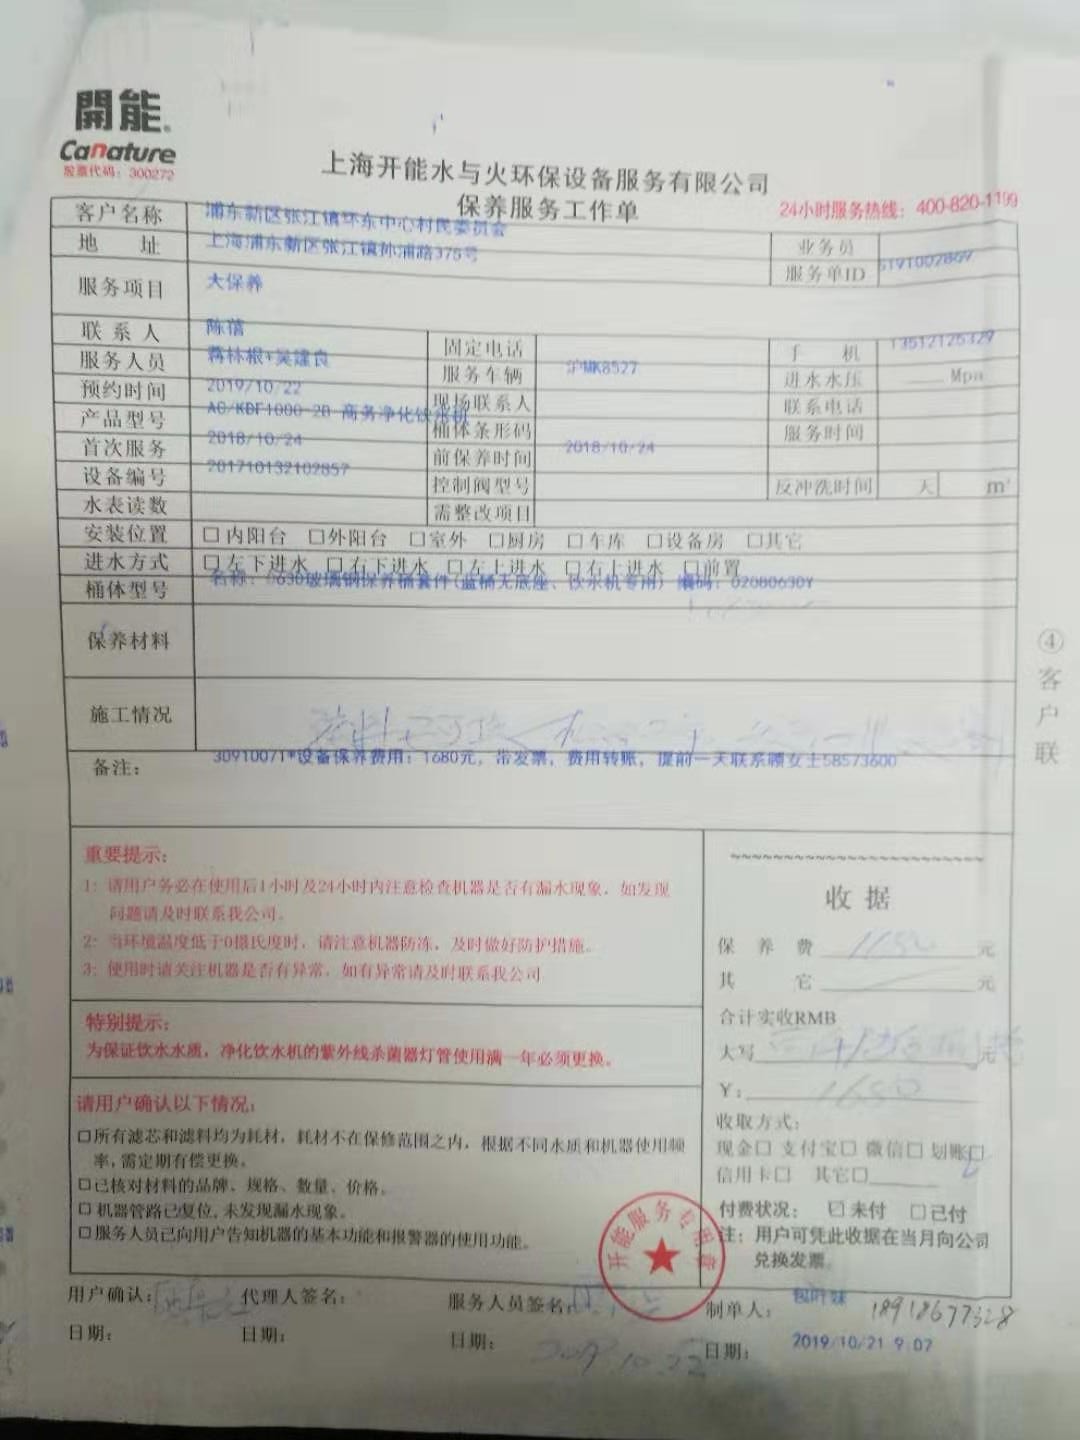 開能
Canature
股票代码：300272
上海开能水与火环保设备服务有限公司
保养服务工作单
24小时服务热线：400-820-1199
客户名称 浦东新区张江镇环东中心村民委员会
地 址 上海浦东新区张江镇孙浦路375号 业务员
服务单ID
服务项目 大保养
联系人 陈蓓 固定电话 手 机 13512125329
服务人员 蒋林根+吴建良 服务车辆 沪MK8527 进水水压 Mpa
预约时间 2019/10/22 现场联系人 联系电话
产品型号 AC/KDF1000-2B 商务净化饮水机 桶体条形码 服务时间
首次服务 2018/10/24 前保养时间 2018/10/24
设备编号 201710132102857 控制阀型号 反冲洗时间 天 m³
水表读数 需整改项目
安装位置 □内阳台 □外阳台 □室外 □厨房 □车库 □设备房 □其它
进水方式 □左下进水 □右下进水 □左上进水 □右上进水 □前置
桶体型号 名称：0630玻璃钢保养桶套件(蓝桶无底座、饮水机专用) 编码：02080630Y
保养材料
施工情况
备注： 30910071*设备保养费用：1680元，带发票，费用转账，提前一天联系顾女士58573600
④客户联
重要提示：
1：请用户务必在使用后1小时及24小时内注意检查机器是否有漏水现象，如发现
问题请及时联系我公司。
2：当环境温度低于0摄氏度时，请注意机器防冻，及时做好防护措施。
3：使用时请关注机器是否有异常，如有异常请及时联系我公司
特别提示：
为保证饮水水质，净化饮水机的紫外线杀菌器灯管使用满一年必须更换。
请用户确认以下情况：
□所有滤芯和滤料均为耗材，耗材不在保修范围之内，根据不同水质和机器使用频
率，需定期有偿更换。
□已核对材料的品牌、规格、数量、价格。
□机器管路已复位，未发现漏水现象。
□服务人员已向用户告知机器的基本功能和报警器的使用功能。
收据
保 养 费 元
其 它 元
合计实收RMB
大写 元
Y： 1680
收取方式：
现金□ 支付宝□ 微信□ 划账□
信用卡□ 其它□
付费状况： ☑未付 □已付
注：用户可凭此收据在当月向公司
兑换发票。
开能服务专用章
用户确认： 代理人签名： 服务人员签名： 制单人： 包叶妹 18918677328
日期： 日期： 日期： 2019.10.22 日期： 2019/10/21 9:07